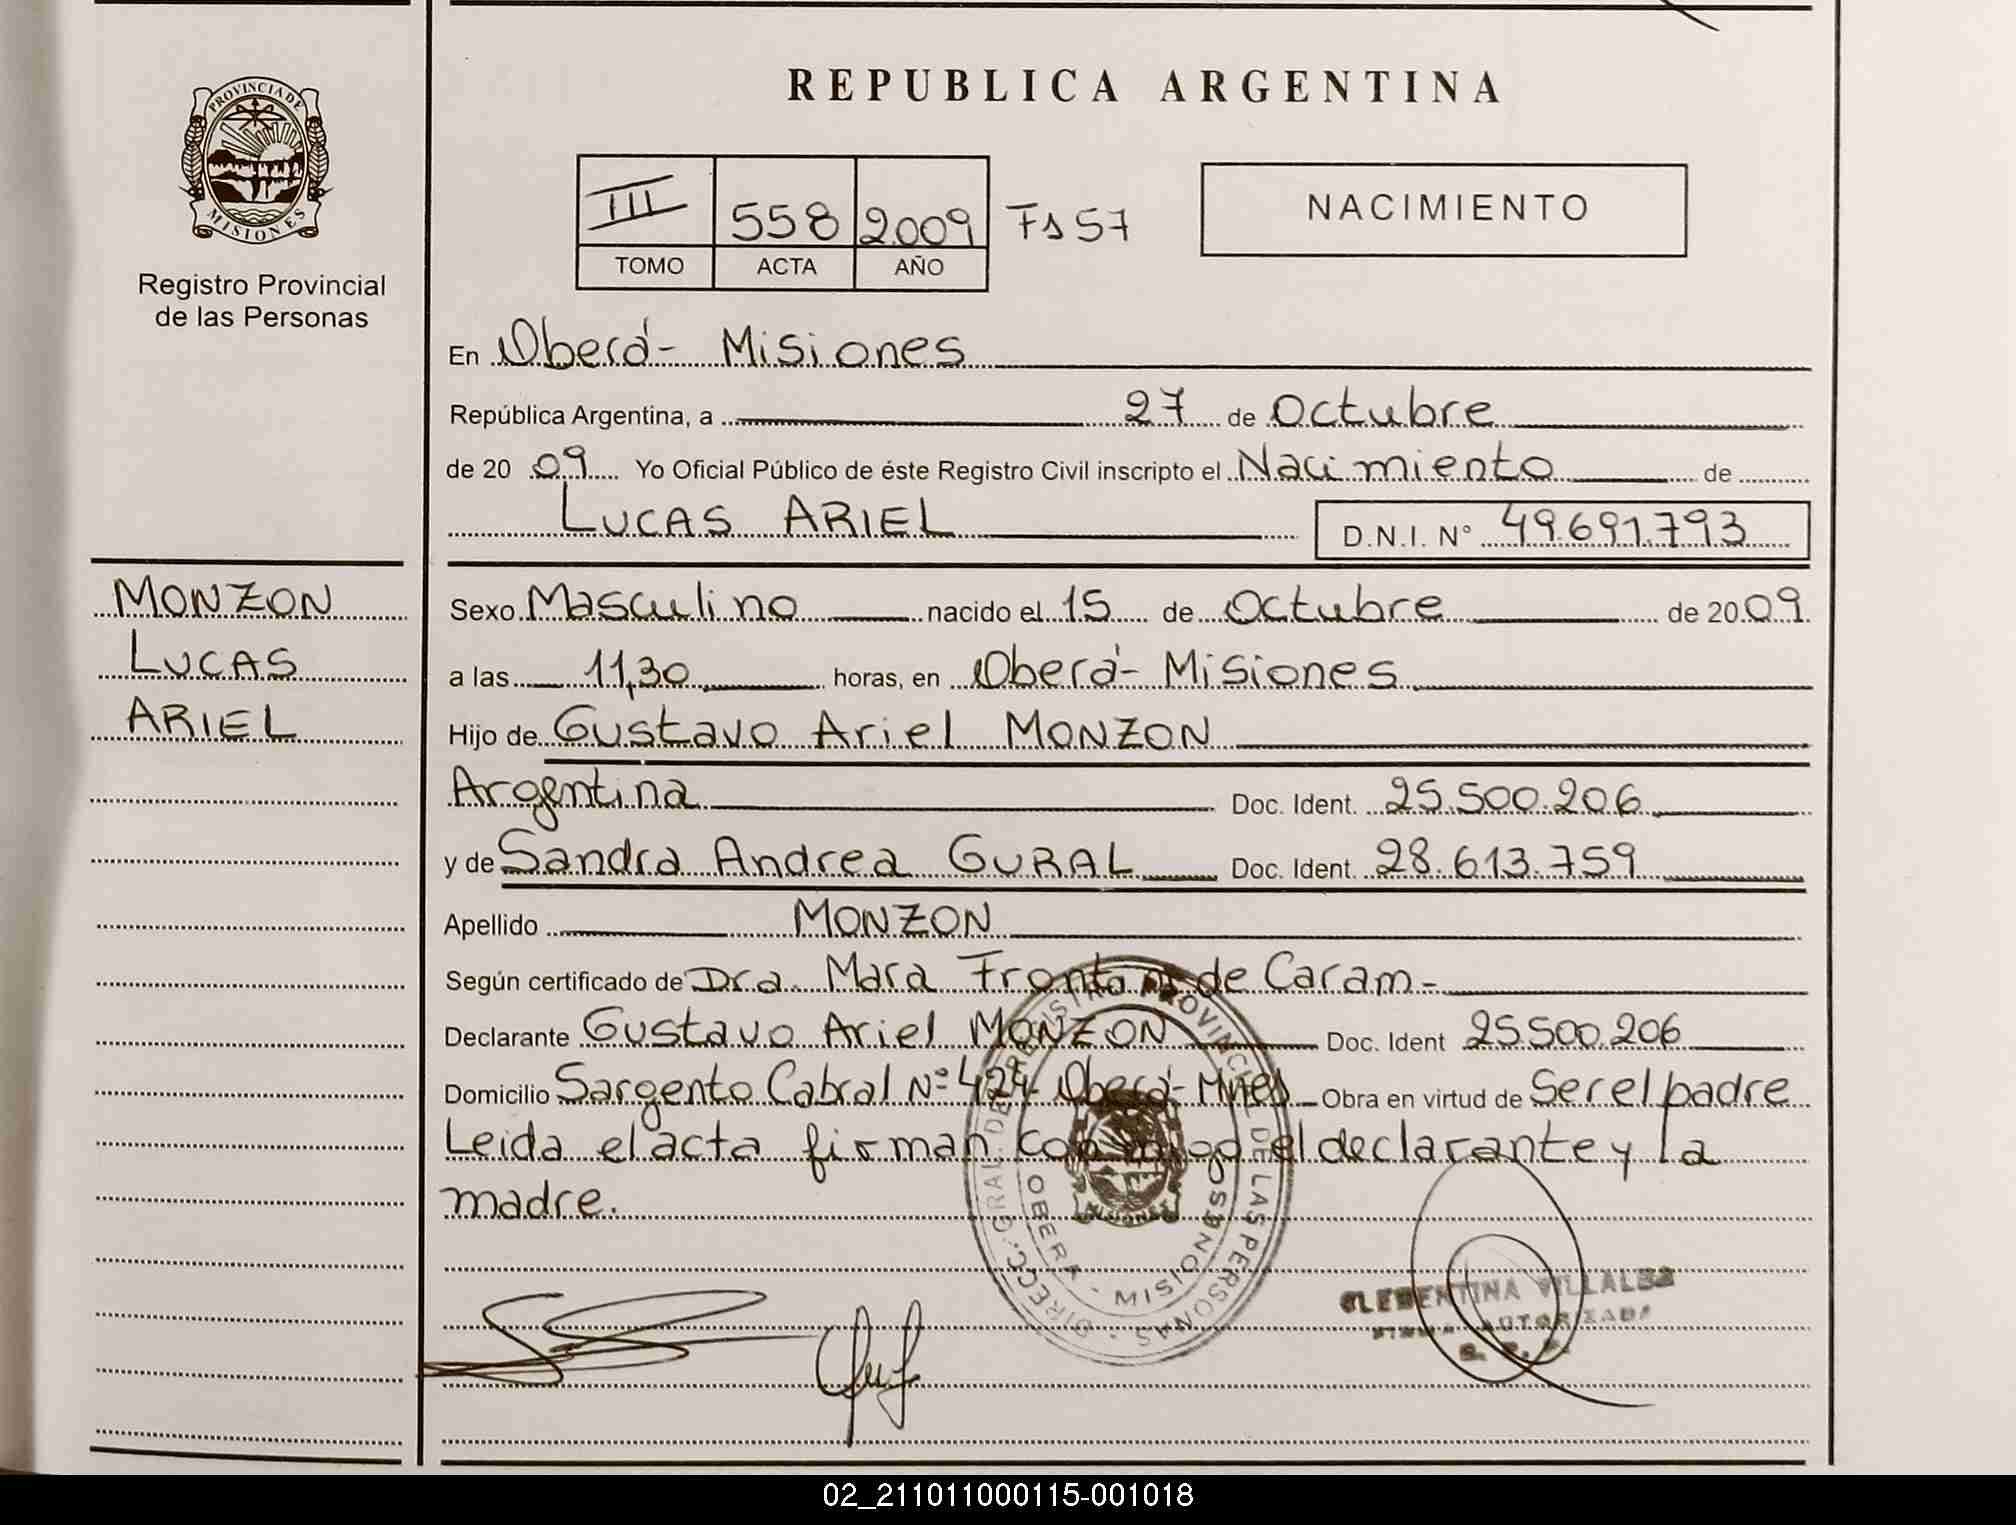 REPUBLICA ARGENTINA
PROVINCIA DE
MISIONES
Registro Provincial
de las Personas
III 558 2009 Fs 57
TOMO ACTA AÑO
NACIMIENTO
En Oberá - Misiones
República Argentina, a 27 de Octubre
de 20 09 Yo Oficial Público de éste Registro Civil inscripto el Nacimiento de
LUCAS ARIEL D.N.I. N° 49.691.793
MONZON
LUCAS
ARIEL
Sexo Masculino nacido el 15 de Octubre de 20 09
a las 11,30 horas, en Oberá - Misiones
Hijo de Gustavo Ariel MONZON
Argentina Doc. Ident. 25.500.206
y de Sandra Andrea GURAL Doc. Ident. 28.613.759
Apellido MONZON
Según certificado de Dra. Mara de Caram -
Declarante Gustavo Ariel MONZON Doc. Ident 25.500.206
Domicilio Sargento Cabral N° 424 Oberá - Mnes Obra en virtud de Ser el padre
Leida el acta firman conmigo el declarante y la
madre.
DIRECC. GRAL. DE REGISTRO PROVINCIAL DE LAS PERSONAS
OBERA - MISIONES
CLEMENTINA VILLALBA
FIRMA AUTORIZADA
02_211011000115-001018